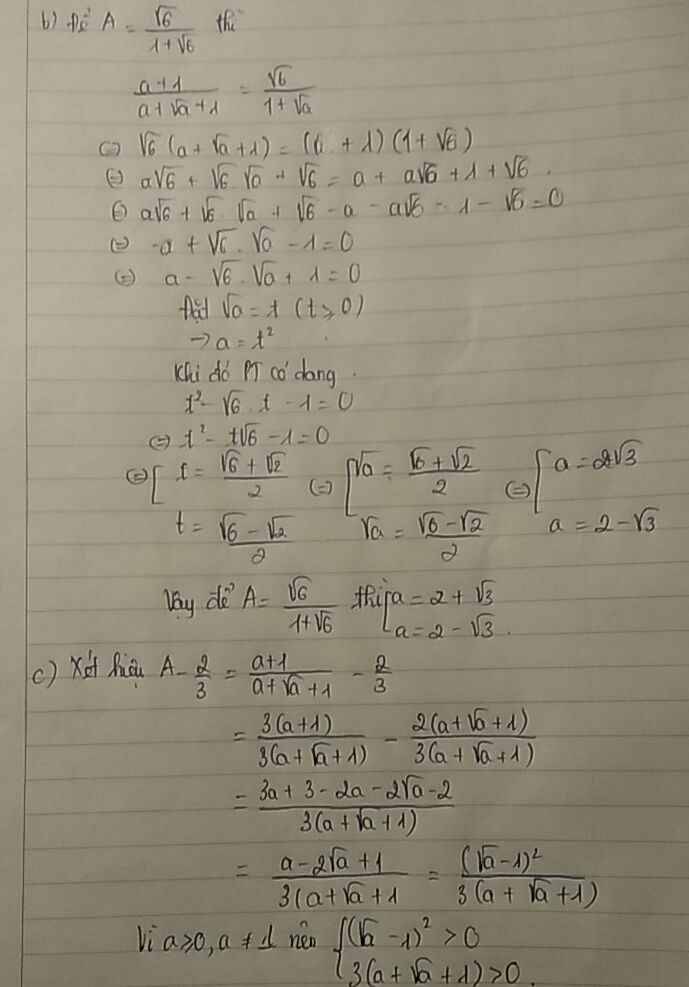 b) Để A = √6/(1+√6) thì
(a+1)/(a+√a+1) = √6/(1+√a)
<=> √6 (a+√a+1) = (6 + 1)(1+√6)
<=> a√6 + √6 √a + √6 = a + a√6 + 1 + √6.
<=> a√6 + √6 √a + √6 - a - a√6 - 1 - √6 = 0
<=> -a + √6 . √a - 1 = 0
<=> a - √6 . √a + 1 = 0
Đặt √a = t (t≥0)
→ a = t²
Khi đó PT có dạng.
t² - √6 . t - 1 = 0
<=> t² - t√6 - 1 = 0
<=> [ t = (√6 + √2)/2 <=> [ √a = (√6 + √2)/2 <=> [ a = 2√3
t = (√6 - √2)/2 √a = (√6 - √2)/2 a = 2 - √3
Vậy để A = √6/(1+√6) thì [ a = 2 + √3
a = 2 - √3.
c) Xét hiệu A - 2/3 = (a+1)/(a+√a+1) - 2/3
= 3(a+1)/3(a+√a+1) - 2(a+√a+1)/3(a+√a+1)
= (3a + 3 - 2a - 2√a - 2)/3(a+√a+1)
= (a - 2√a + 1)/3(a+√a+1 = (√a-1)²/3(a+√a+1)
Vì a≥0, a ≠ 1 nên { (√a - 1)² > 0
3(a+√a+1) > 0.